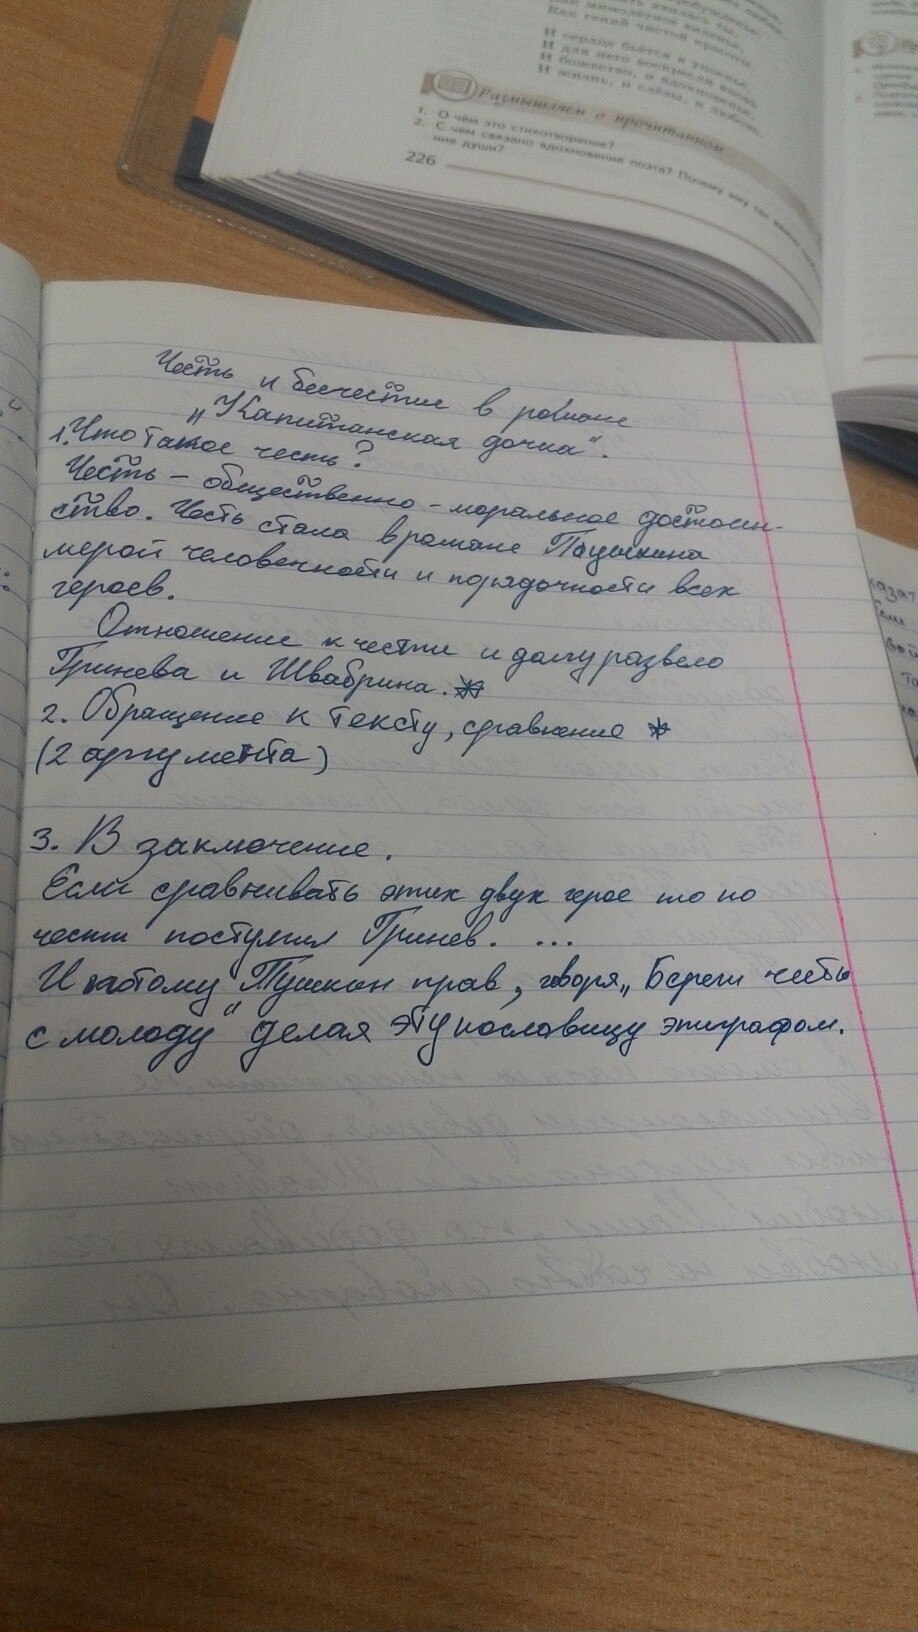 Как мимолётное виденье,
Как гений чистой красоты
И сердце бьётся в упоенье,
И для него воскресли вновь
И божество, и вдохновенье,
И жизнь, и слёзы, и любовь.
Размышляем о прочитанном
1. О чём это стихотворение?
2. С чем связано вдохновение поэта? Почему ему так
ние души?
226
Честь и бесчестие в романе
„Капитанская дочка“.
1. Что такое честь?
Честь – общественно-моральное достоин-
ство. Честь стала в романе Пушкина
мерой человечности и порядочности всех
героев.
Отношение к чести и долгу развело
Гринева и Швабрина.
2. Обращение к тексту, сравнение
(2 аргумента)
3. В заключение.
Если сравнивать этих двух герое то по
чести поступил Гринев. ...
И потому Пушкин прав, говоря „Береги честь
с молоду“ делая эту пословицу эпиграфом.